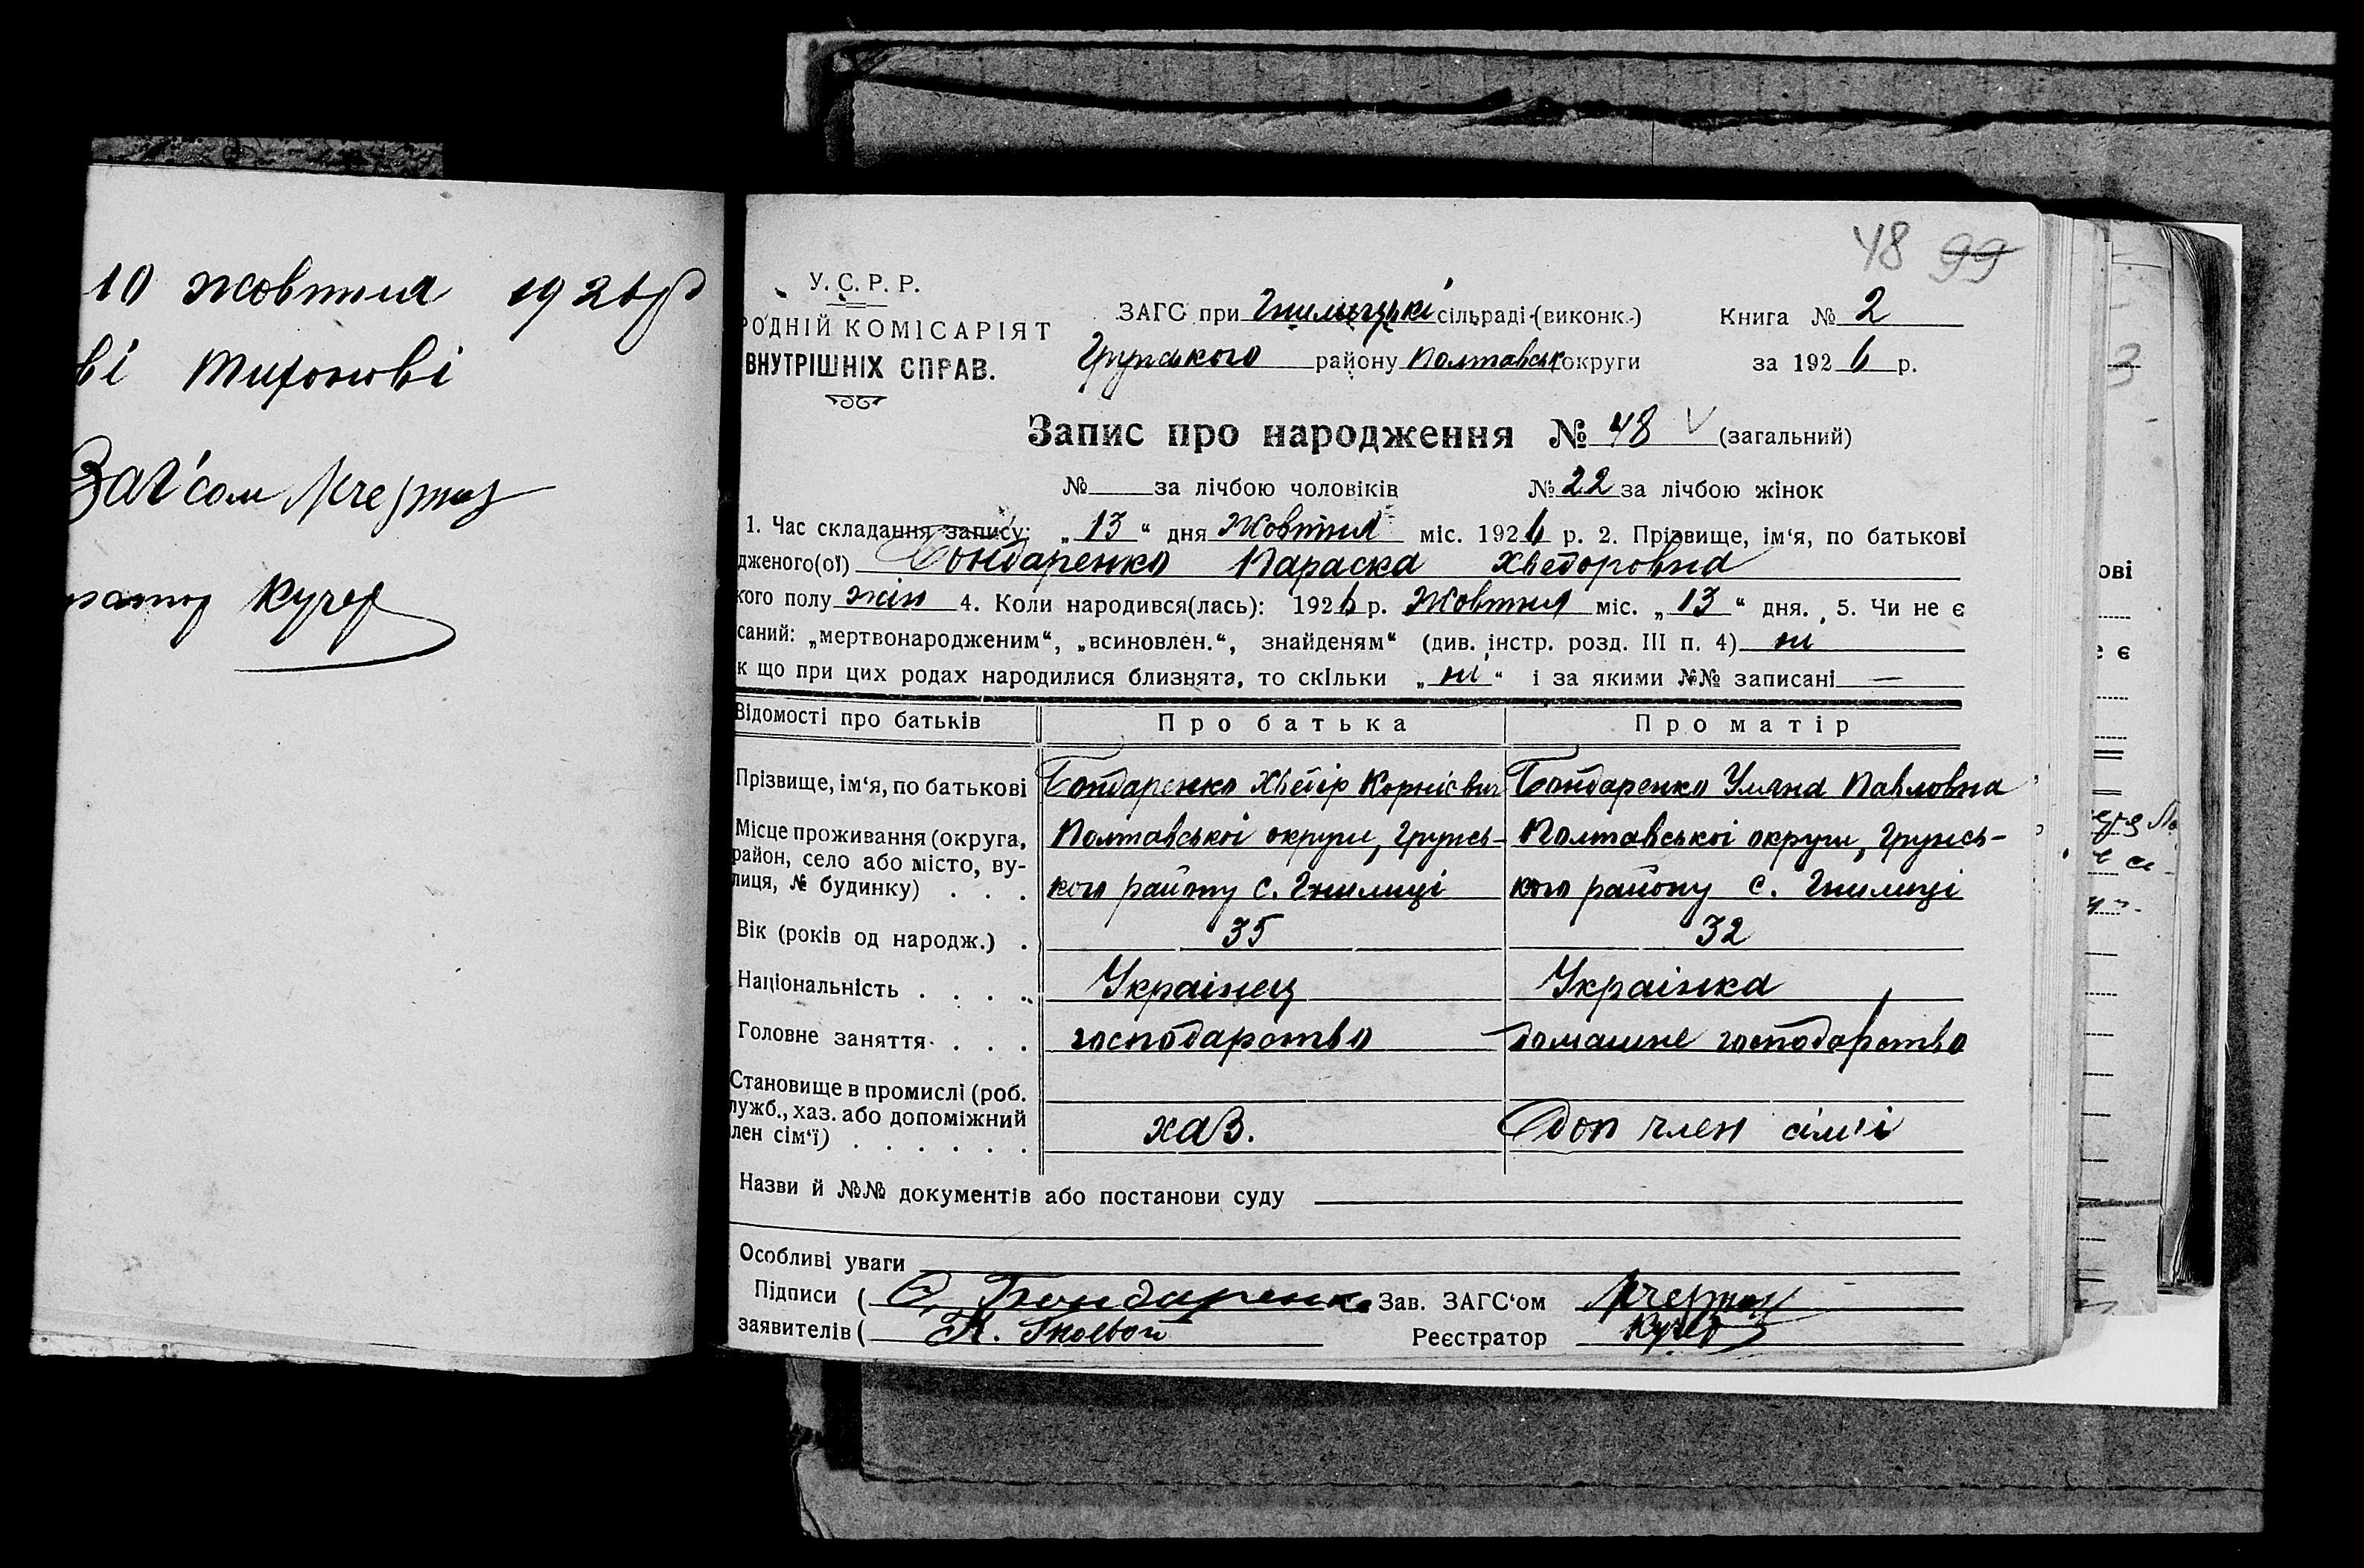 10 жовтня 1926 р
ві Тихонові
Заг'сом
Кучер
48 99
У.С.Р.Р.
РОДНІЙ КОМІСАРІЯТ
ВНУТРІШНІХ СПРАВ.
ЗАГС при Гнилицькі сільраді (виконк.)
Грунського району Полтавськ округи
Книга № 2
за 1926 р.
Запис про народження № 48 V (загальний)
№ за лічбою чоловіків № 22 за лічбою жінок
1. Час складання запису: „13“ дня Жовтня міс. 1926 р. 2. Прізвище, ім‘я, по батькові
дженого(ої) Бондаренко Параска Хведоровна
кого полу жін 4. Коли народився(лась): 1926 р. Жовтня міс. „13“ дня. 5. Чи не є
саний: „мертвонародженим“, „всиновлен.“, знайденям“ (див. інстр. розд. III п. 4) ні
к що при цих родах народилися близнята, то скільки „ні“ і за якими №№ записані —
Відомості про батьків Про батька Про матір
Прізвище, ім‘я, по батькові Бондаренко Хведір Корнієвич Бондаренко Уляна Павловна
Місце проживання (округа, район, село або місто, ву-
лиця, № будинку) . . .
Полтавської округи, Грунсь-
кого району с. Гнилиці
Полтавської округи, Грунсь-
кого району с. Гнилиці
Вік (років од народж.) . 35 32
Національність . . . . Українец Українка
Головне заняття . . . господарство домашне господарство
Становище в промислі (роб.
лужб., хаз. або допоміжний
лен сім‘ї) . . . . . . хаз. Доп член сім'ї
Назви й №№ документів або постанови суду
Особливі уваги
Підписи ( Бондаренко Зав. ЗАГС‘ом
заявителів ( Реєстратор Кучер
ові
є